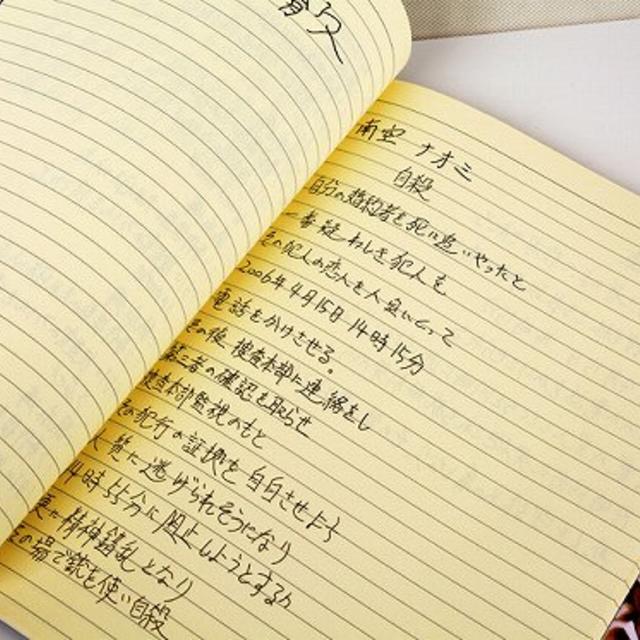 南空 ナオミ
自殺
自分の婚約者を死に追いやったと
一番疑わしき犯人を
その犯人の恋人を人質にとって
2006年4月15日14時15分
電話をかけさせる。
その後、捜査本部に連絡をし
第三者の確認を取らせ
捜査本部監視のもと
の犯行の証拠を自白させよう
人質に逃げられそうになり
14時55分に阻止しようとするが
精神錯乱となり
その場で銃を使い自殺